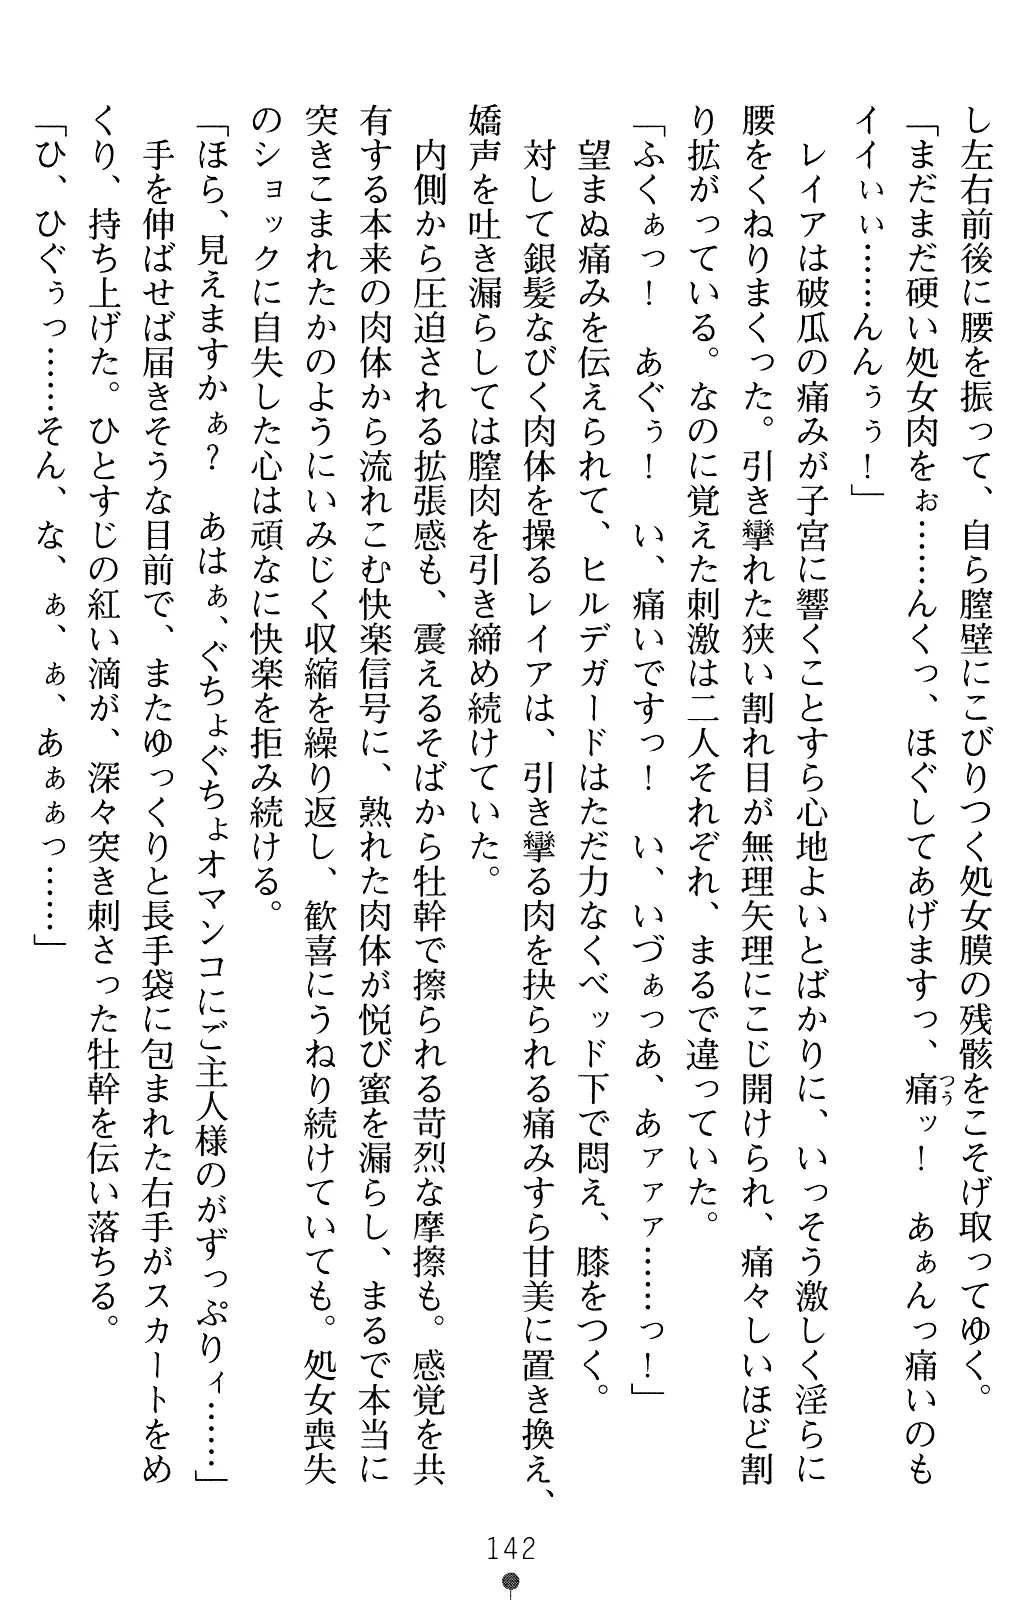 し左右前後に腰を振って、自ら膣壁にこびりつく処女膜の残骸をこそげ取ってゆく。
「まだまだ硬い処女肉をぉ……んくっ、ほぐしてあげますっ、痛ッ！　あぁんっ痛いのも
イイぃぃ……んんぅぅ！」
　レイアは破瓜の痛みが子宮に響くことすら心地よいとばかりに、いっそう激しく淫らに
腰をくねりまくった。引き攣れた狭い割れ目が無理矢理にこじ開けられ、痛々しいほど割
り拡がっている。なのに覚えた刺激は二人それぞれ、まるで違っていた。
「ふくぁっ！　あぐぅ！　い、痛いですっ！　い、いづぁっあ、あァァァ……っ！」
　望まぬ痛みを伝えられて、ヒルデガードはただ力なくベッド下で悶え、膝をつく。
　対して銀髪なびく肉体を操るレイアは、引き攣る肉を抉られる痛みすら甘美に置き換え、
嬌声を吐き漏らしては膣肉を引き締め続けていた。
　内側から圧迫される拡張感も、震えるそばから牡幹で擦られる苛烈な摩擦も。感覚を共
有する本来の肉体から流れこむ快楽信号に、熟れた肉体が悦び蜜を漏らし、まるで本当に
突きこまれたかのようにいみじく収縮を繰り返し、歓喜にうねり続けていても。処女喪失
のショックに自失した心は頑なに快楽を拒み続ける。
「ほら、見えますかぁ？　あはぁ、ぐちょぐちょオマンコにご主人様のがずっぷりィ……」
　手を伸ばせば届きそうな目前で、またゆっくりと長手袋に包まれた右手がスカートをめ
くり、持ち上げた。ひとすじの紅い滴が、深々突き刺さった牡幹を伝い落ちる。
「ひ、ひぐぅっ……そん、な、ぁ、ぁ、あぁぁっ……」
142